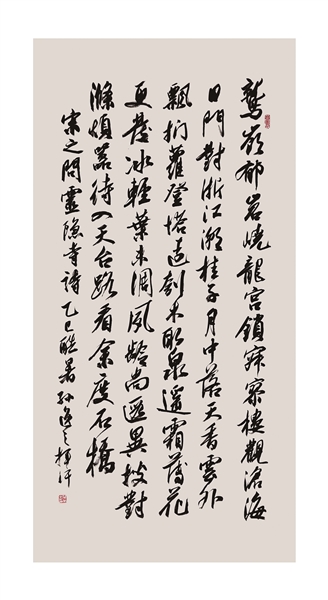 鷲嶺郁岧嶢龍宮鎖寂寥樓觀滄海
日門對浙江潮桂子月中落天香雲外
飄捫蘿登塔遠刳木取泉遥霜薄花
更發冰輕葉未凋夙齡尚遐異搜對
滌煩囂待入天台路看余度石橋
宋之問靈隱寺詩 乙巳酷暑孫逸之揮汗